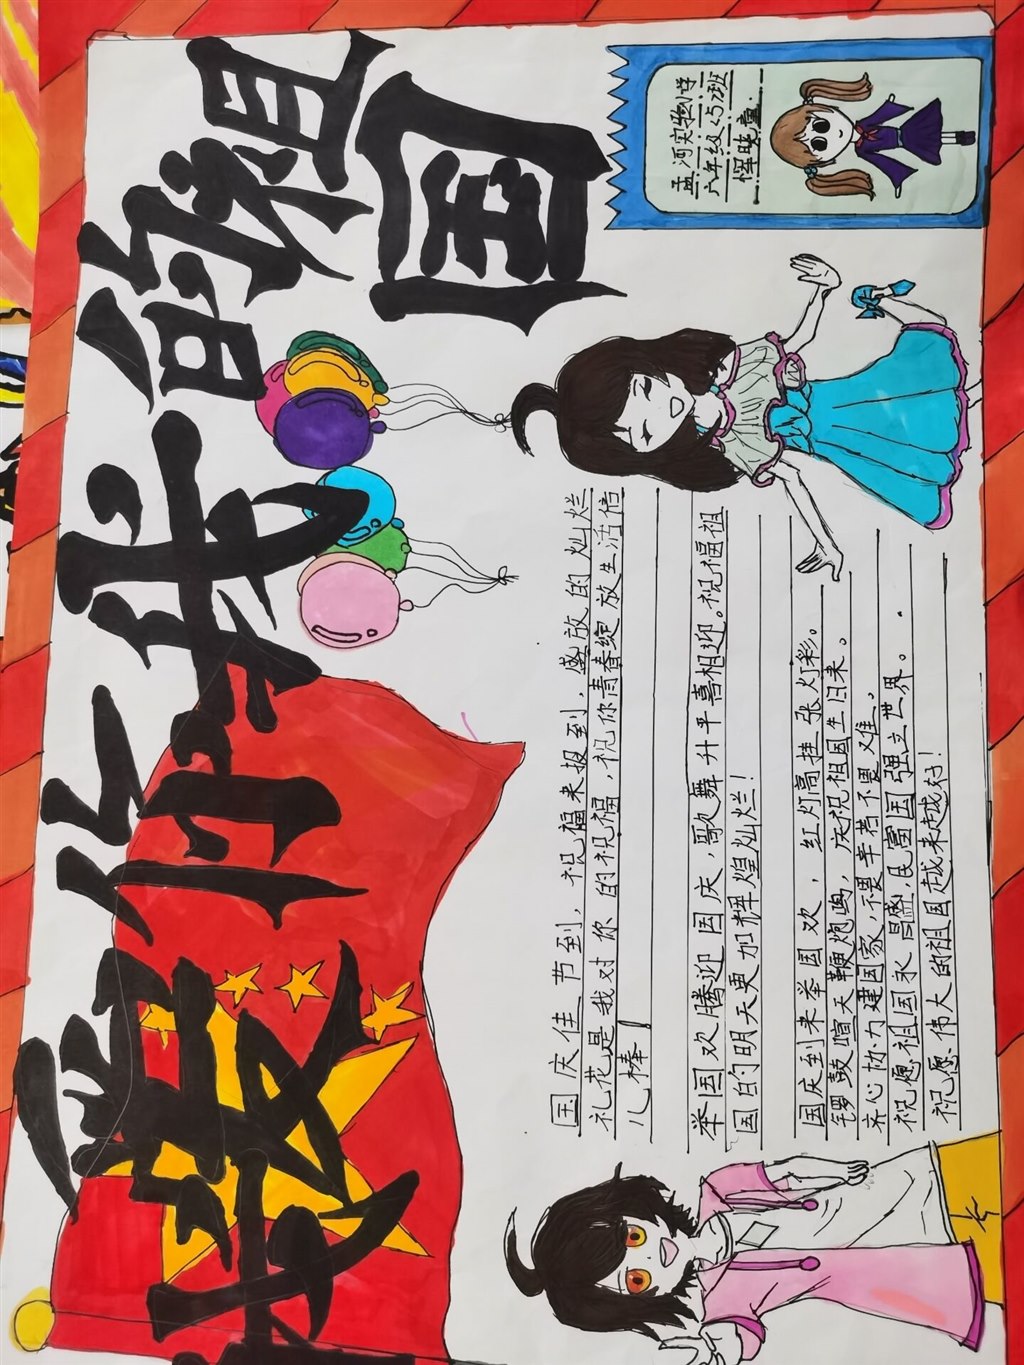 我爱你我的祖国
孟河实验小学
六年级(5)班
恽晓童
国庆佳节到，祝福来报到，盛放的灿烂
礼花是我对你的祝福，祝你青春绽放生活倍
儿棒！
举国欢腾迎国庆，歌舞升平喜相迎。祝福祖
国的明天更加辉煌灿烂！
国庆到来举国欢，红灯高挂张灯彩。
锣鼓喧天鞭炮鸣，庆祝祖国生日来。
齐心协力建国家，不畏辛若不畏难。
祝愿祖国永昌盛，民富国强立世界。
祝愿伟大的祖国越来越好！